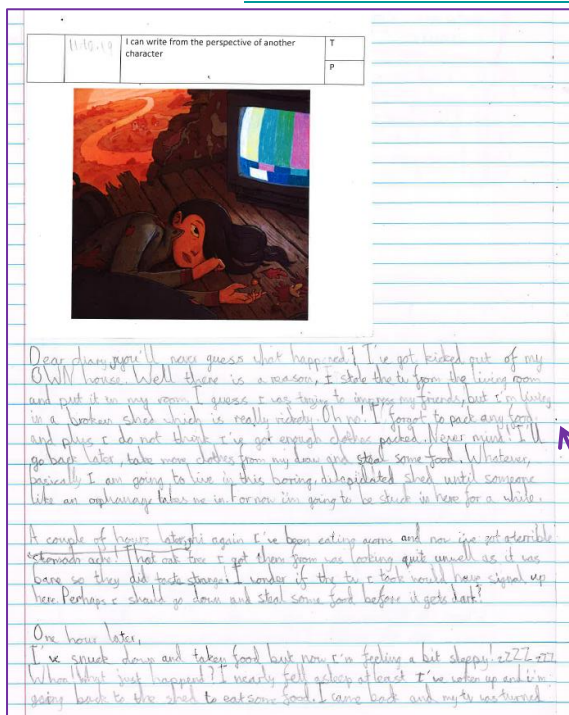 11.10.19
I can write from the perspective of another
character
T
P
Dear diary, you'll never guess what happened! I've got kicked out of my
OWN house. Well there is a reason, I stole the tv from the living room
and put it in my room I guess I was trying to impress my friends, but I'm living
in a broken shed which is really rickety. Oh no! I forgot to pack any food
and plus I do not think I've got enough clothes packed. Never mind! I'll
go back later, take more clothes from my draw and steal some food. Whatever,
basically I am going to live in this boring, dilapidated shed until someone
like an orphanage takes me in. For now im going to be stuck in here for a while.
A couple of hours later, hi again I've been eating acorns and now ive got a terrible
stomach ache! That oak tree I got them from was looking quit unwell as it was
bare so they did taste strange. I wonder if the tv I took would have signal up
here. Perhaps I should go down and steal some food before it gets dark?
One hour later,
I've snuck down and taken food but now I'm feeling a bit sleepy! zZZZ zzz
Whoa! What just happend? I nearly fell asleep atleast I've woken up and i'm
going back to the shed to eat some food. I came back and my tv was turned